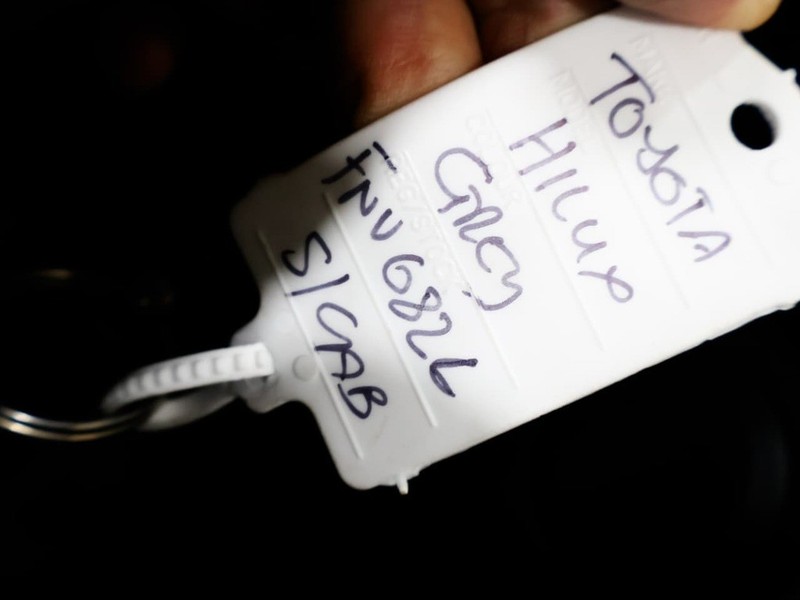 TOYOTA
HILUX
GREY
FNV6826
S/CAB